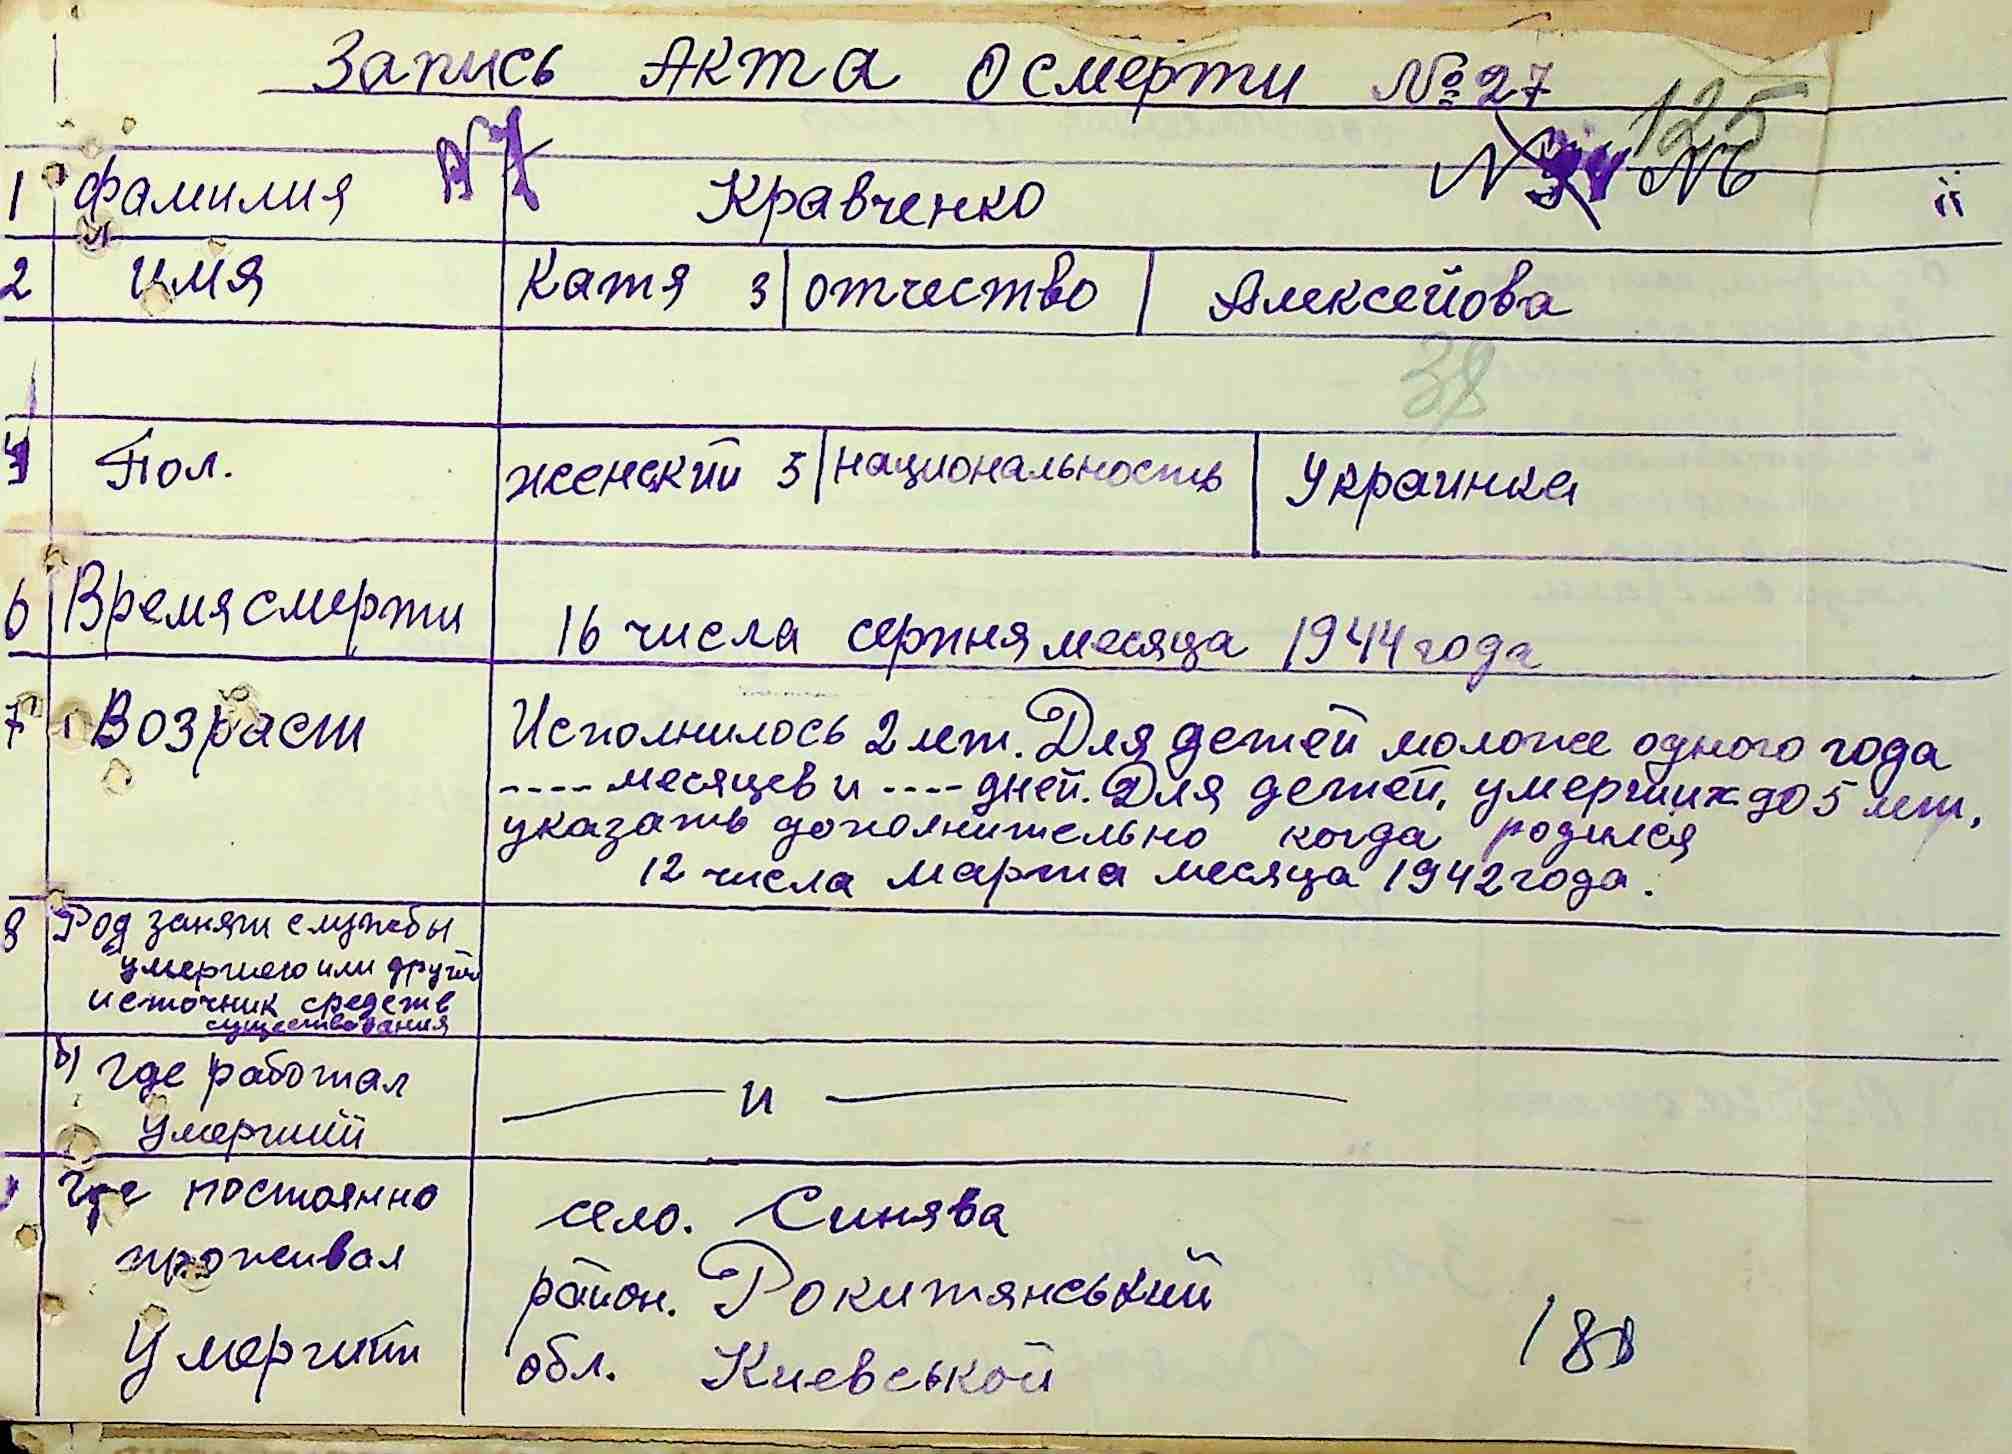 Запись Акта о смерти № 27
125
№
1 Фамилия Кравченко
2 имя Катя 3 отчество Алексейова
38
4 Пол. женский 5 национальность Украинка
6 Время смерти 16 числа серпня месяца 1944 года
7 Возраст Исполнилось 2 лет. Для детей моложе одного года
---- месяцев и ---- дней. Для детей, умерших до 5 лет,
указать дополнительно когда родился
12 числа марта месяца 1942 года.
8 Род занят службы
умершего или другой
источник средств
существования
б) где работал — и —
умерший
где постоянно село. Синява
проживал район. Рокитянський
умерший обл. Киевськой
188